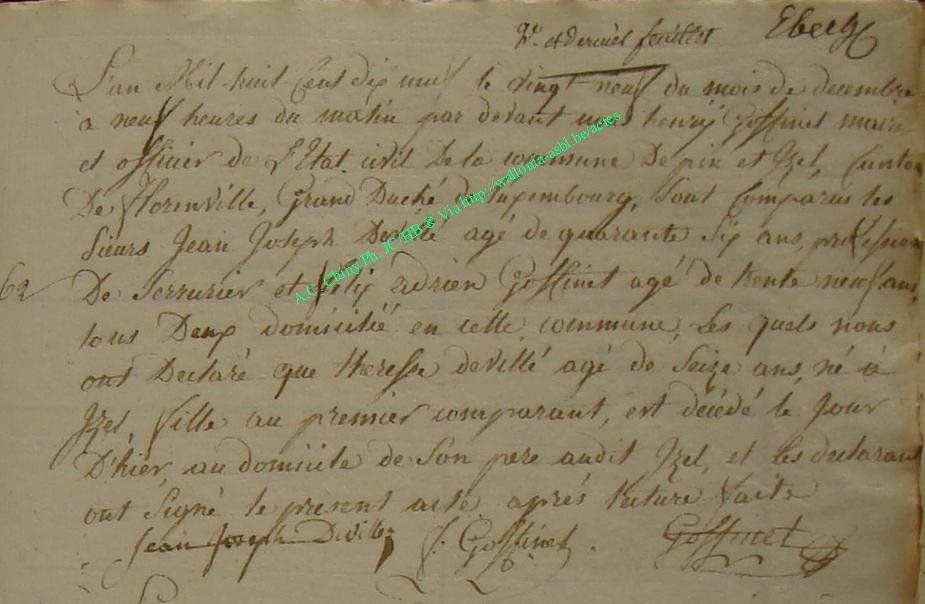 et dernier feuillet Eberg
L'an Mil huit Cent dix neuf le vingt neuf du mois de decembre
a neuf heures du matin par devant nous henry Goffinet maire
et officier de l'Etat civil De la commune De pin et Izel, Canton
De Florenville, Grand Duché de Luxembourg, Sont Comparus les
Sieurs Jean Joseph Devillé agé de quarante Six ans, profession
62 De Serrurier et félix adrien Goffinet agé de trente neuf ans,
tous Deux domicilié en cette commune, Les quels nous
ont Declaré que theresse devillé agé de Seize ans, né à
Izel, fille au premier comparant, est décédé le Jour
D'hier, au domicile de Son pere audit Izel, et les declarant
ont Signé le present acte après lecture faite
Jean Joseph Devillez f. Goffinet. Goffinet
A.C. Chiny Ph. JC HB ® Via http://wallonia-asbl.be/actes